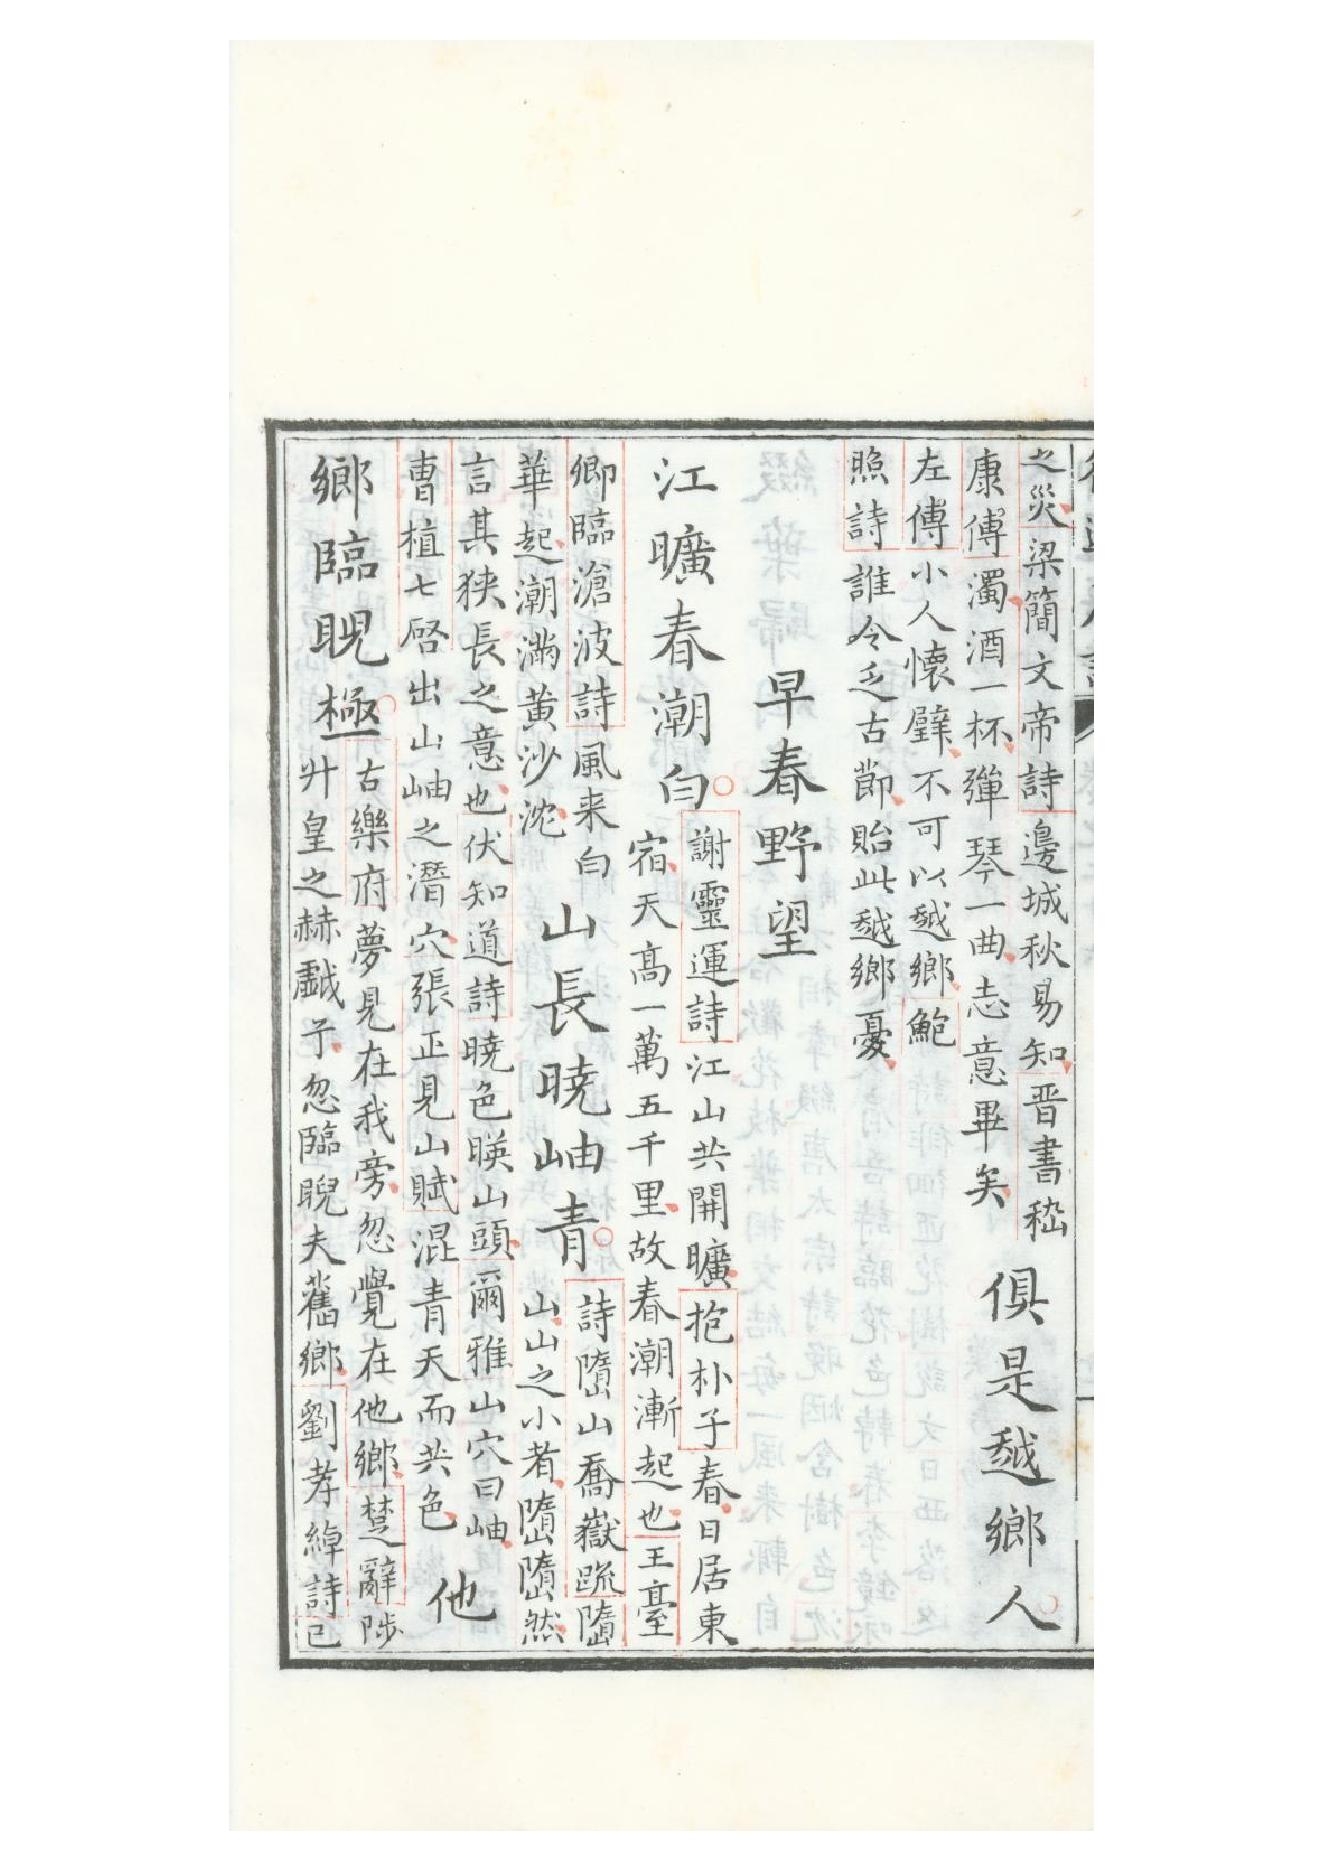 之災梁簡文帝詩邊城秋易知晋書嵇
康傳濁酒一杯彈琴一曲志意畢矣
俱是越鄉人
左傳小人懷璧不可以越鄉鮑
照詩誰令乏古節貽此越鄉憂
早春野望
江曠春潮白
謝靈運詩江山共開曠抱朴子春日居東
宿天高一萬五千里故春潮漸起也王臺
卿臨滄波詩風来白
華起潮滿黄沙沈
山長曉岫青
詩嶞山喬嶽疏嶞
山山之小者嶞嶞然
言其狹長之意也伏知道詩曉色暎山頭爾雅山穴曰岫
曹植七啓出山岫之潛穴張正見山賦混青天而共色
他
鄉臨睨極
古樂府夢見在我旁忽覺在他鄉楚辭陟
升皇之赫戲兮忽臨睨夫舊鄉劉孝綽詩已